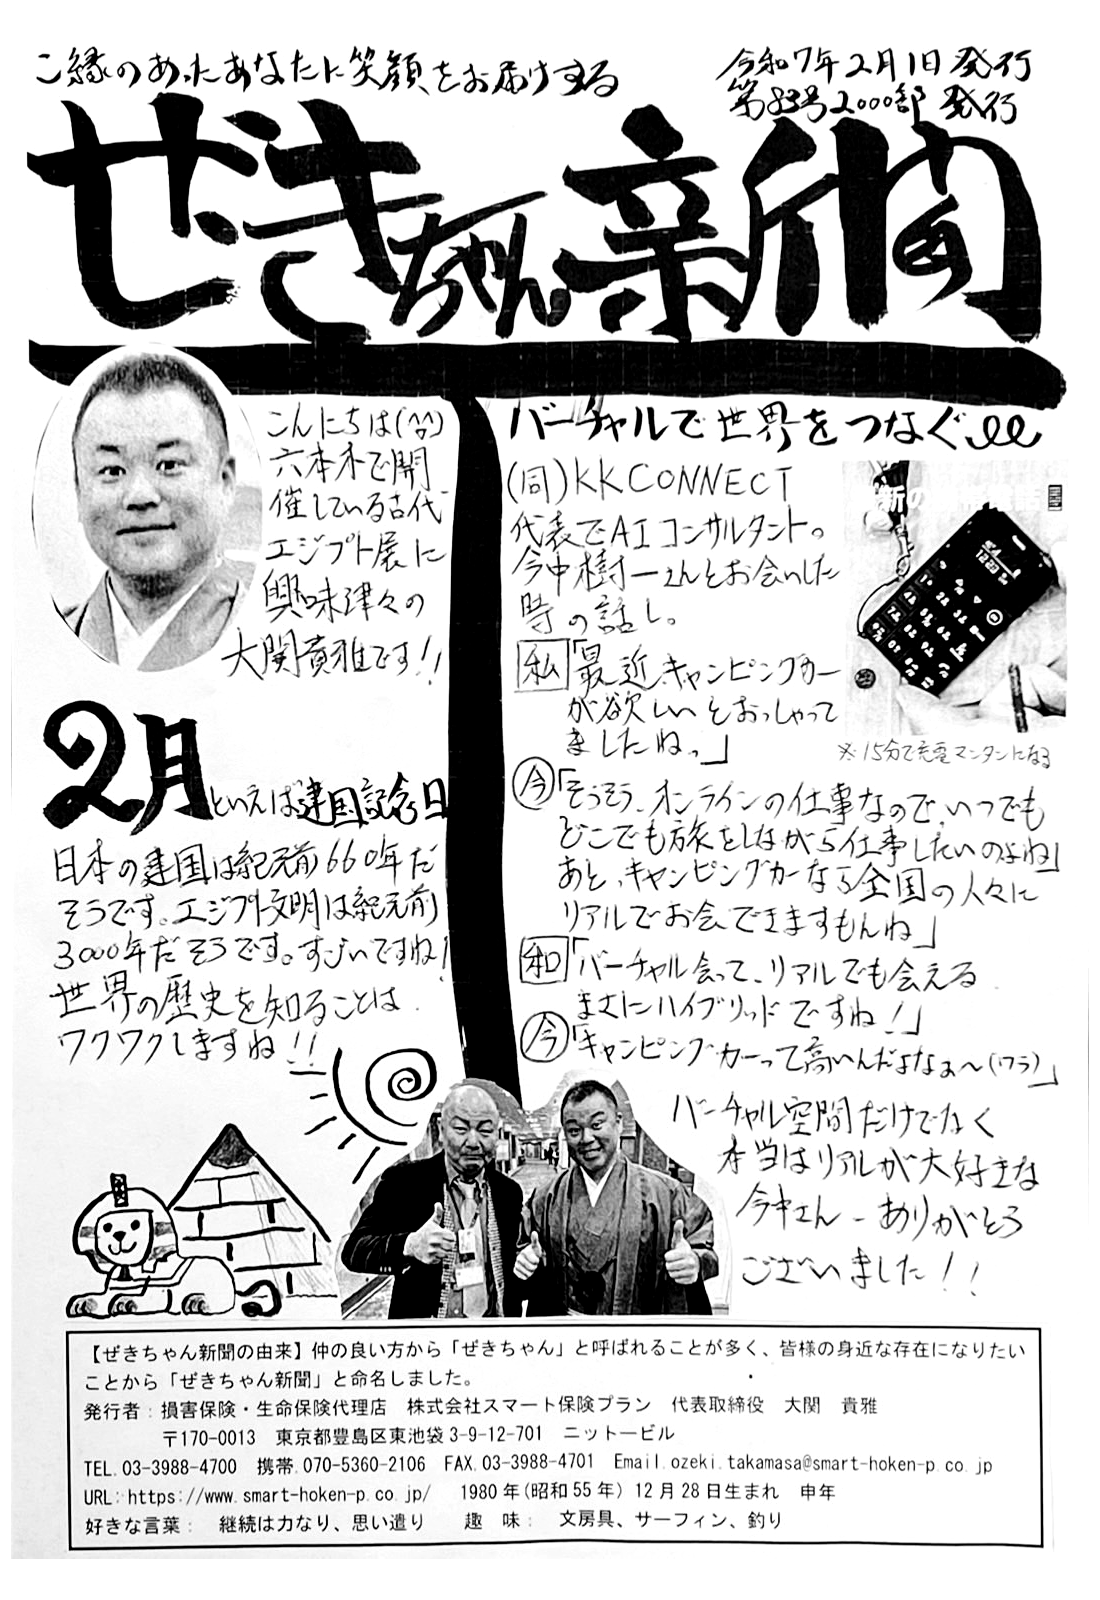 ご縁のあったあなたに笑顔をお届けする
令和7年2月1日発行
第83号2000部発行
ぜきちゃん新聞
こんにちは(^^)
六本木で開
催している古代
エジプト展に
興味津々の
大関貴雅です!!
2月といえば建国記念日
日本の建国は紀元前660年だ
そうです。エジプト文明は紀元前
3000年だそうです。すごいですね!
世界の歴史を知ることは
ワクワクしますね!!
バーチャルで世界をつなぐ
(同)KKCONNECT
代表でAIコンサルタントの
今中樹一さんとお会いした
時の話し。
私「最近、キャンピングカー
が欲しいとおっしゃって
ましたねっ」
※15分で充電マンタンになる
今「そうそう、オンラインの仕事なので、いつでも
どこでも旅をしながら仕事したいのよね」
あと、キャンピングカーなら全国の人々に
リアルでお会いできますもんね」
和「バーチャル会って、リアルでも会える
まさにハイブリッドですね!」
今「キャンピングカーって高いんだよなぁ〜(ワラ)」
バーチャル空間だけでなく
本当はリアルが大好きな
今中さん、ありがとう
ございました!!
【ぜきちゃん新聞の由来】仲の良い方から「ぜきちゃん」と呼ばれることが多く、皆様の身近な存在になりたい
ことから「ぜきちゃん新聞」と命名しました。
発行者:損害保険・生命保険代理店 株式会社スマート保険プラン 代表取締役 大関 貴雅
〒170-0013 東京都豊島区東池袋3-9-12-701 ニットービル
TEL.03-3988-4700 携帯.070-5360-2106 FAX.03-3988-4701 Email.ozeki.takamasa@smart-hoken-p.co.jp
URL:https://www.smart-hoken-p.co.jp/ 1980年(昭和55年)12月28日生まれ 申年
好きな言葉: 継続は力なり、思い遣り 趣 味: 文房具、サーフィン、釣り